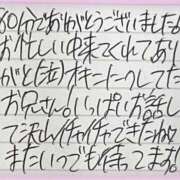 80分でありがとうございました!
お忙しい中来てくれてあり
がと(泣)オキニトークしてた
お兄さん。いっぱいお話し
て沢山イチャイチャできたね♡
またいつでも待ってます!